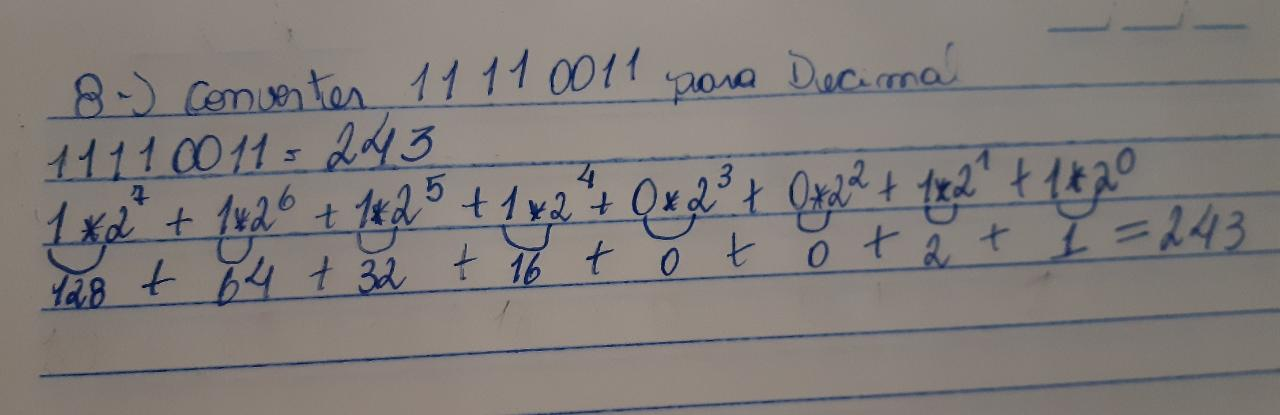 8-) Converter 11110011 para Decimal
11110011 = 243
1*2⁷ + 1*2⁶ + 1*2⁵ + 1*2⁴ + 0*2³ + 0*2² + 1*2¹ + 1*2⁰
128 + 64 + 32 + 16 + 0 + 0 + 2 + 1 = 243